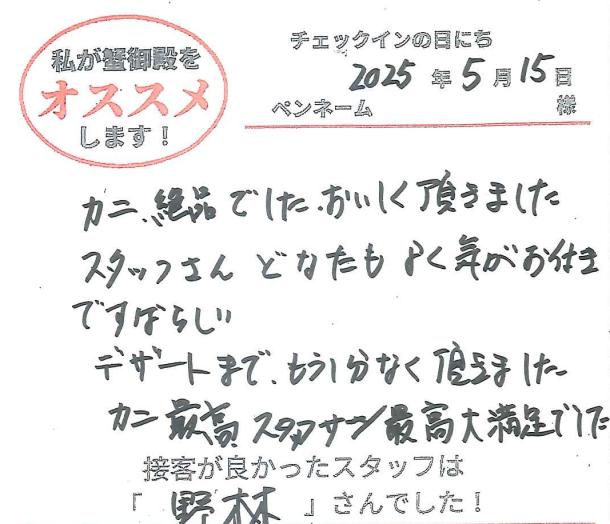 私が蟹御殿を
オススメ
します！
チェックインの日にち
2025年5月15日
ペンネーム 様
カニ、絶品でした、おいしく頂きました
スタッフさん どなたも よく気がお付き
ですばらしい
デザートまで、もう1分なく頂きました
カニ最高 スタッフサン最高大満足でした
接客が良かったスタッフは
「野林」さんでした！